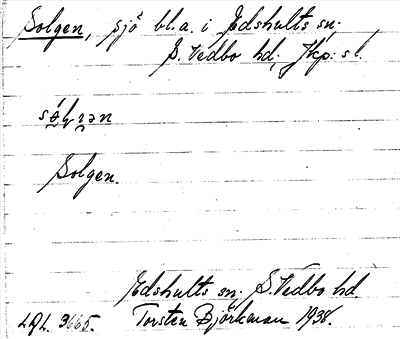 Solgen, sjö bl.a. i Edshults sn.,
S. Vedbo hd., Jkp:s l.
Solgen.
Edshults sn. S. Vedbo hd.
LAL. 3665. Torsten Björkman 1938.